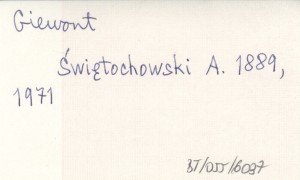 Giewont
Świętochowski A. 1889,
1971
BJ/OJJ/6097